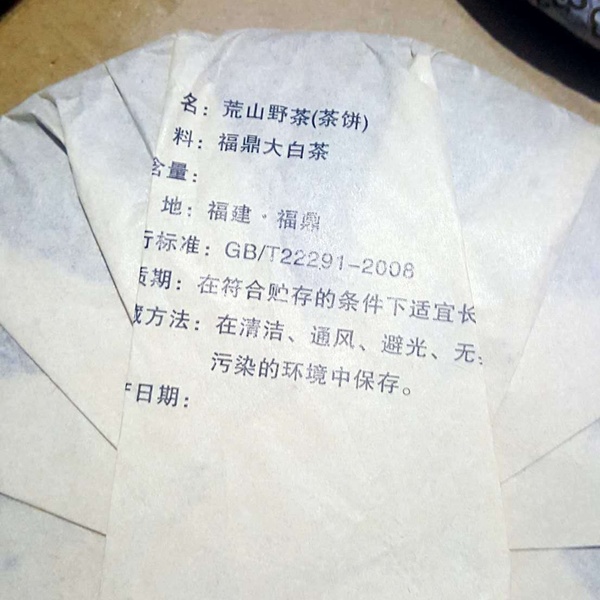 名：荒山野茶(茶饼)
料：福鼎大白茶
含量：
地：福建·福鼎
行标准：GB/T22291-2008
质期：在符合贮存的条件下适宜长
藏方法：在清洁、通风、避光、无
污染的环境中保存。
产日期：